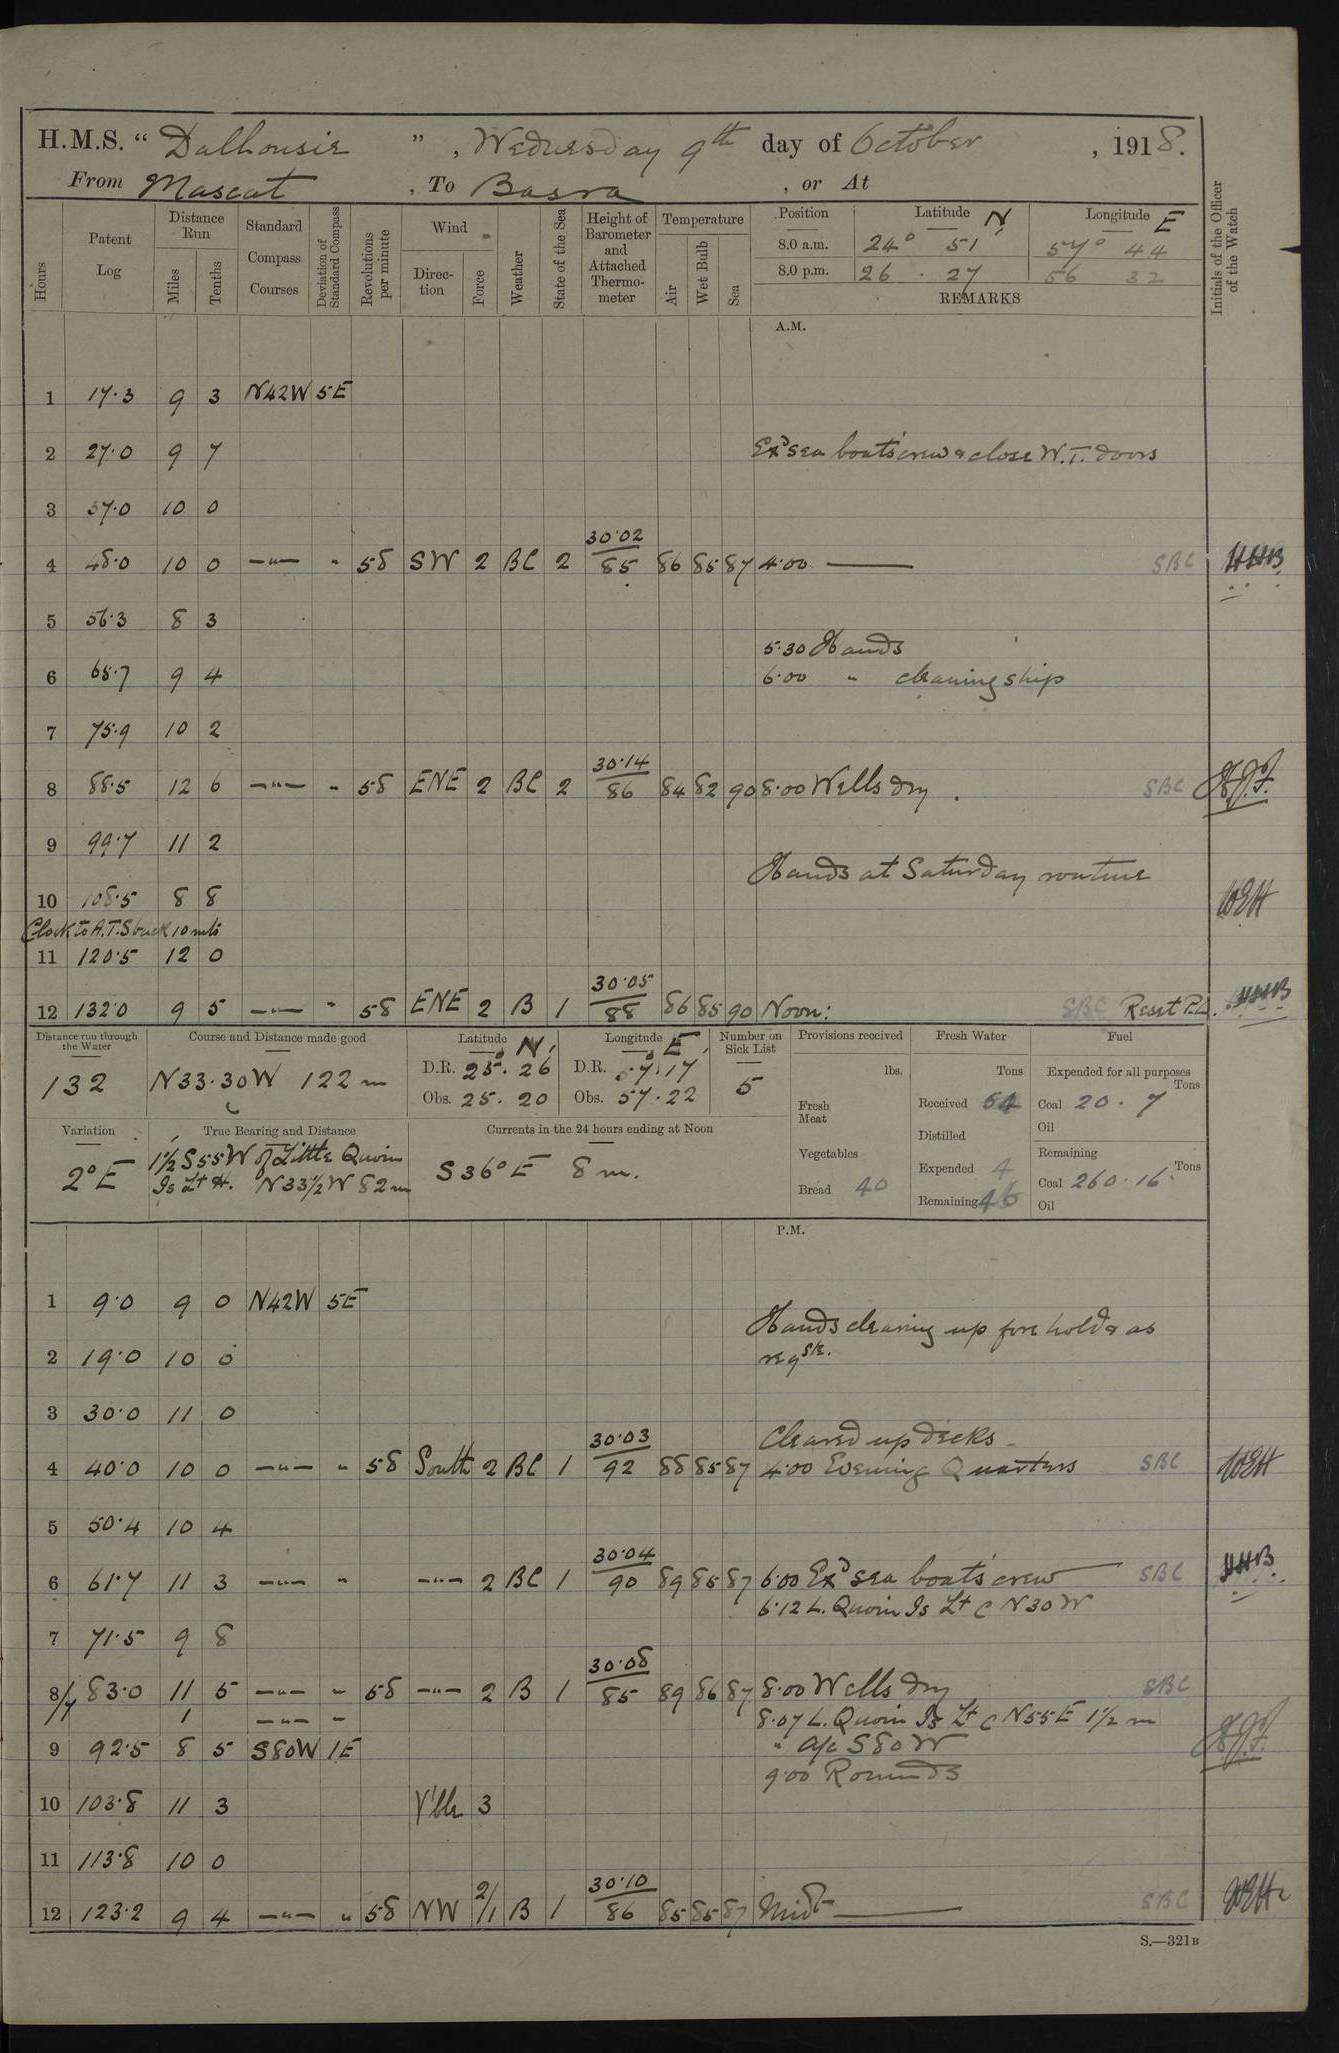 H.M.S. “ Dalhousie ” , Wednesday 9th day of October , 1918.
From Mascat , To Basra , or At
Hours
Patent Log
Distance Run
Miles
Tenths
Standard Compass Courses
Deviation of Standard Compass
Revolutions per minute
Wind
Direction
Force
Weather
State of the Sea
Height of Barometer and Attached Thermometer
Temperature
Air
Wet Bulb
Sea
Position Latitude N Longitude E
8.0 a.m. 24° 51' 57° 44
8.0 p.m. 26 . 27 56 32
REMARKS
Initials of the Officer of the Watch
A.M.
1 17.3 9 3 N42W 5E
2 27.0 9 7 Exd sea boat's crew & close W.T. doors
3 37.0 10 0
4 48.0 10 0 —"— " 58 SW 2 BC 2 30.02/85 86 85 87 4.00 —— SBC HHB
5 56.3 8 3
5.30 Hands
6 65.7 9 4 6.00 " cleaning ship
7 75.9 10 2
8 88.5 12 6 —"— " 58 ENE 2 BC 2 30.14/86 84 82 90 8.00 Wells dry . SBC
9 99.7 11 2
Hands at Saturday routine
10 108.5 8 8 WEH
Clock to A.T.S back 10 mts
11 120.5 12 0
12 132.0 9 5 —"— " 58 ENE 2 B 1 30.05/88 86 85 90 Noon: SBC Reset P.L. HHB
Distance run through the Water
132
Course and Distance made good
N33.30W 122 m
Latitude N
D.R. 25. 26
Obs. 25. 20
Longitude E
D.R. 57. 17
Obs. 57. 22
Number on Sick List
5
Provisions received
lbs.
Fresh Meat
Vegetables
Bread 40
Fresh Water
Tons
Received
Distilled
Expended 4
Remaining 46
Fuel
Expended for all purposes
Tons
Coal 20 . 7
Oil
Remaining
Tons
Coal 260.16.
Oil
Variation
2° E
True Bearing and Distance
1½ S55W of Little Quoin
Is Lt H. N33½W 82 m
Currents in the 24 hours ending at Noon
S 36° E 8 m.
P.M.
1 9.0 9 0 N42W 5E
Hands clearing up fore hold & as
2 19.0 10 0 reqste.
3 30.0 11 0
Cleared up decks
4 40.0 10 0 —"— " 58 South 2 BC 1 30.03/92 88 85 87 4.00 Evening Quarters SBC WEH
5 50.4 10 4
6 61.7 11 3 —"— " —"— 2 BC 1 30.04/90 89 85 87 6.00 Exd sea boat's crew SBC HHB
6.12 L. Quoin Is Lt C N30W
7 71.5 9 8
8/7 83.0 11 5 —"— " 58 —"— 2 B 1 30.08/85 89 86 87 8.00 Wells dry SBC
1 —"— " 8.07 L. Quoin Is Lt C N55E 1½ m
9 92.5 8 5 S80W 1E " A/c S80W
9.00 Rounds
10 103.8 11 3 V'ble 3
11 113.8 10 0
12 123.2 9 4 —"— " 58 NW 2/1 B 1 30.10/86 85 85 87 Midt —— SBC WEH
S.—321B